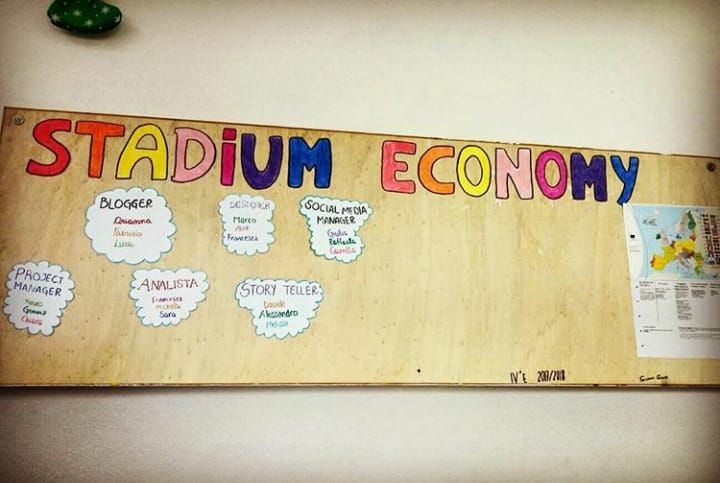 STADIUM ECONOMY
BLOGGER
Arianna
Fabrizio
Luca
DESIGNER
Marco
Alex
Francesca
SOCIAL MEDIA
MANAGER
Giulia
Raffaella
Camilla
PROJECT
MANAGER
Gemma
Chiara
ANALISTA
Francesca
Michela
Sara
STORY TELLER
Davide
Alessandro
Melissa
IV°E 2017/2018